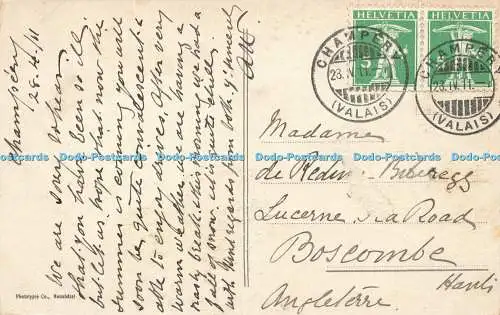 Champéry
28.4.11
We are sorry to hear
that you have been so ill
but let us hope now the
summer is coming you will
soon be quite convalescent &
able to enjoy drives. After very
warm weather we are having a
nasty break this morning we had a
fall of snow in to chills.
with kind regards from both yr: sincerely
HELVETIA
HELVETIA
5
5
CHAMPÉRY
28.IV.11.
(VALAIS)
CHAMPÉRY
28.IV.11.
(VALAIS)
Madame
de Redin-Biberegg
Lucerne Road
Boscombe
Hants
Angleterre
Phototypie Co., Neuchâtel
Dodo-Postcards Dodo-Postcards Dodo-Postcards Dodo-Postcards Dodo-Postcards